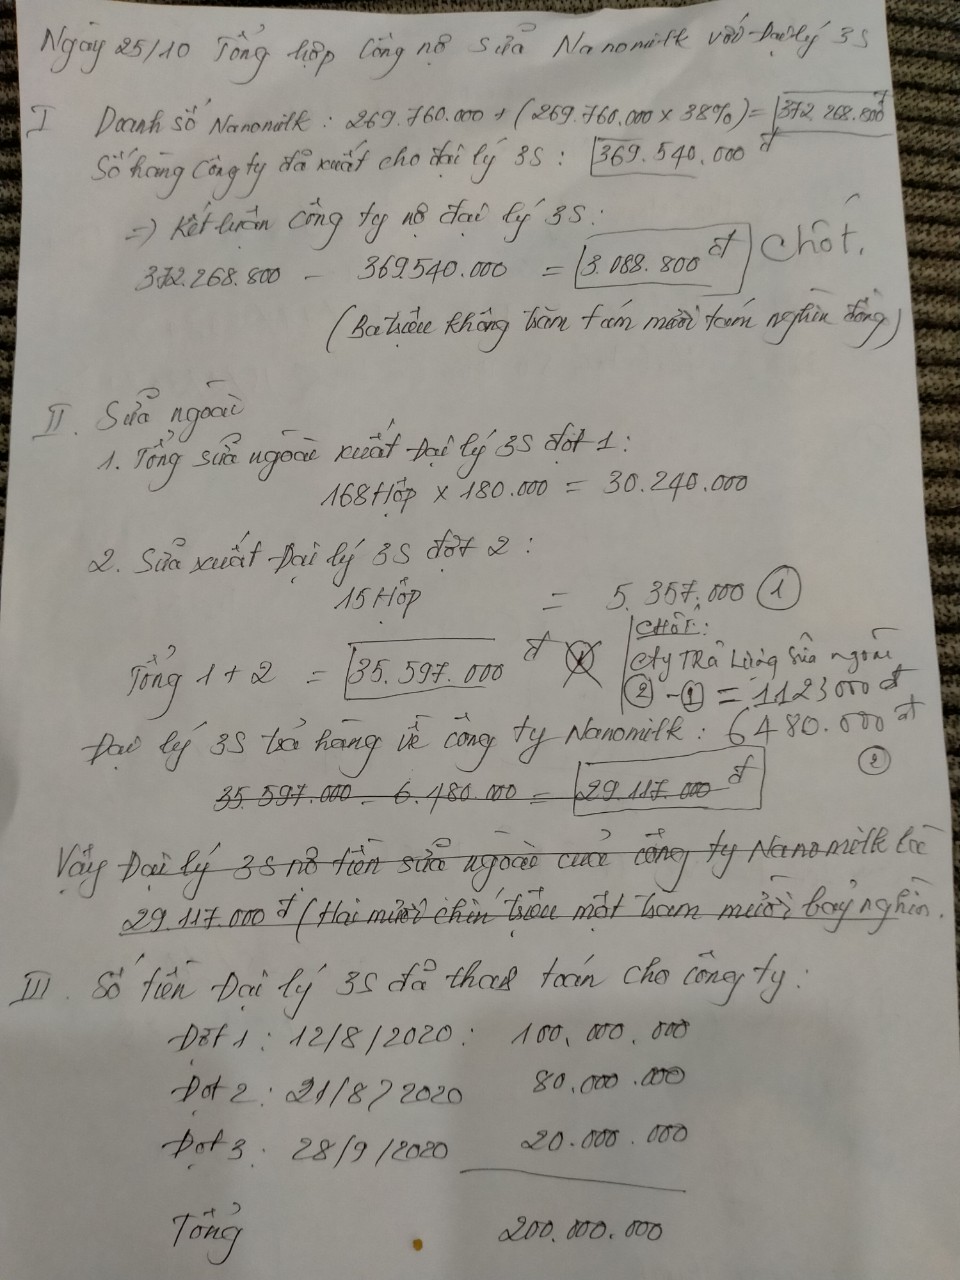 Ngày 25/10 Tổng hợp Công nợ sữa Nanomilk với Đại lý 3S
I Doanh số Nanomilk : 269.760.000 + (269.760.000 x 38%) = 372.268.800đ
Số hàng Công ty đã xuất cho đại lý 3S : 369.540.000 đ
=> Kết luận Công ty nợ đại lý 3S :
372.268.800 - 369540.000 = 3.088.800 đ Chốt.
(Ba triệu không trăm tám mươi tám nghìn đồng)
II. Sữa ngoài
1. Tổng sữa ngoài xuất Đại lý 3S đợt 1 :
168 Hộp x 180.000 = 30.240.000
2. Sữa xuất Đại lý 3S đợt 2 :
15 Hộp = 5.357.000 (1)
CHỐT :
Tổng 1 + 2 = 35.597.000 đ
Cty TRả Lượng Sữa ngoài
(2) - (1) = 1123000 đ
Đại lý 3S trả hàng về công ty Nanomilk : 6480.000 đ
(2)
35.597.000 - 6.480.000 = 29.117.000 đ
Vậy Đại lý 3S nợ tiền sữa ngoài của công ty Nanomilk là
29.117.000 đ (Hai mươi chín triệu một trăm mười bảy nghìn.
III. Số tiền Đại lý 3S đã thanh toán cho công ty :
Đợt 1 : 12/8/2020 : 100.000.000
Đợt 2 : 21/8/2020 80.000.000
Đợt 3 : 28/9/2020 20.000.000
Tổng 200.000.000